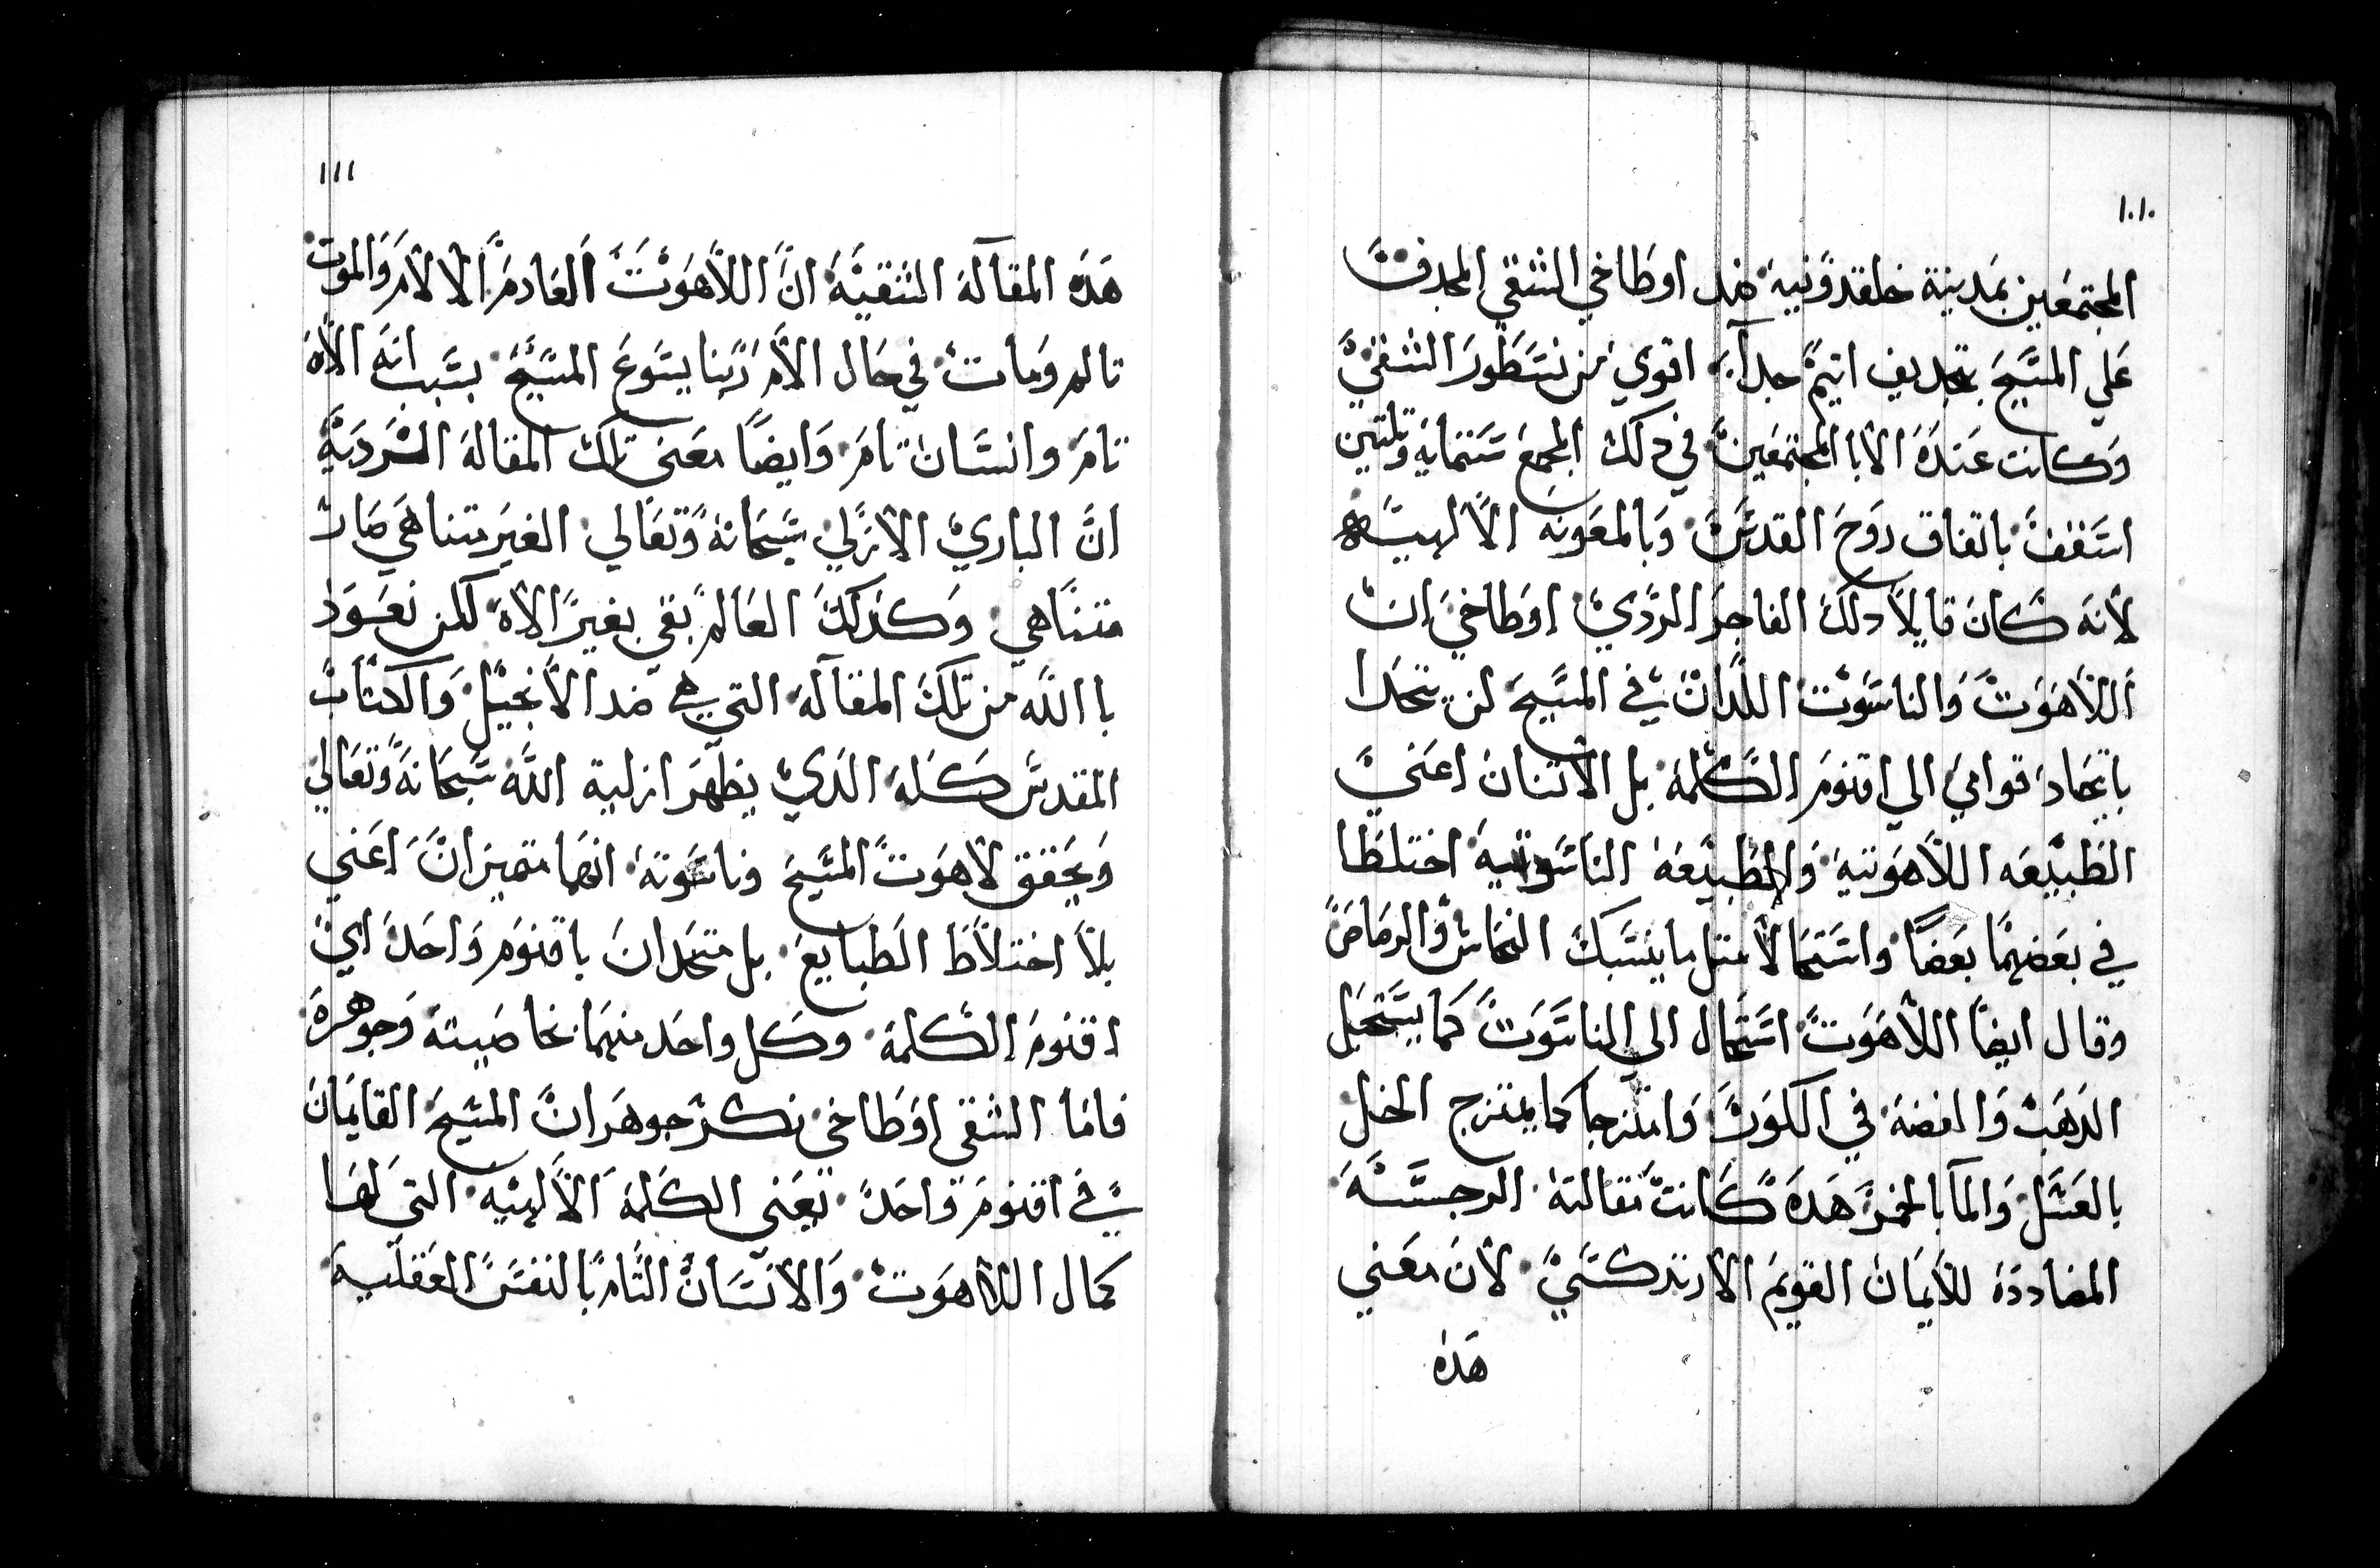 ١٠١٠
المجتمعين بمدينة خلقدونية ضد اوطاخي الشقي المجدف
علي المسيح بتجديف اتيم جداً اقوي من نسطور الشقي
وكانت عندة الابا المجتمعين في دلك المجمع ستماية وتلتين
اسقف باتفاق روح القدس وبالمعونه الالهيه
لانه كان قايلا دلك الفاجر الردي اوطاخي ان
اللاهوت والناسوت اللدان في المسيح لن يتحدا
باتحاد قوامي الي اقنوم الكلمة بل الاتنان اعني
الطبيعه اللاهوتية والطبيعة الناسوتية اختلطا
في بعضهما بعضاً واستحالا متل ما ينسبك النحاس والرصاص
وقال ايضاً اللاهوت استحال الي الناسوت كما يستحيل
الدهب والفضة في الكور وامتزجا كما يمتزج الخل
بالعسل والمآ بالخمر هده كانت مقالتة الرجسه
المضاددة للايمان القويم الارتدكسي لان معني
هده
١١١
هده المقالة الشقية ان اللاهوت العادم الالام والموت
تالم ومات في حال الام ربنا يسوع المسيح بسبب انه الاه
تام وانسان تام وايضاً معني تلك المقالة الردية
ان الباري الازلي سبحانه وتعالي الغير متناهي صار
متناهي وكدلك العالم بقي بغير الاه لكن نعود
با الله من تلك المقالة التي هي ضد الانجيل والكتاب
المقدس كله الدي يظهر ازلية الله سبحانه وتعالي
ويحقق لاهوت المسيح وناسوتة انهما متميزان اعني
بلا اختلاط الطبايع بل متحدان باقنوم واحد اي
اقنوم الكلمة وكل واحد منهما بخاصيته وجوهرة
فاما الشقي اوطاخي نكر جوهران المسيح القايمان
في اقنوم واحد يعني الكلمة الالهيه التي لها
كمال اللاهوت والانسان التام بالنفس العقلية